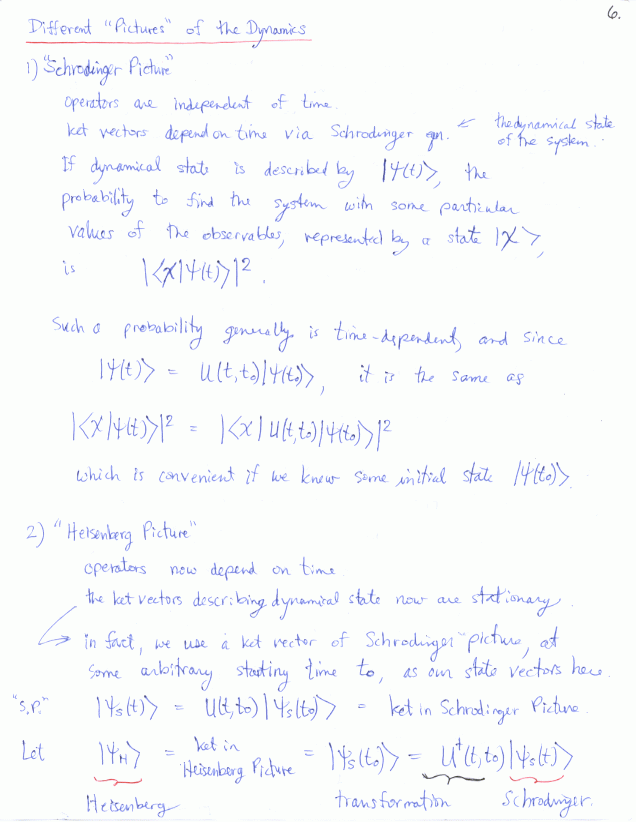 6.
Different "Pictures" of the Dynamics
1) "Schrodinger Picture"
operators are independent of time.
ket vectors depend on time via Schrodinger eqn. ← the dynamical state
of the system.
If dynamical state is described by |ψ(t)⟩, the
probability to find the system with some particular
values of the observables, represented by a state |χ⟩,
is |⟨χ|ψ(t)⟩|².
Such a probability generally is time-dependent, and since
|ψ(t)⟩ = U(t,t₀)|ψ(t₀)⟩, it is the same as
|⟨χ|ψ(t)⟩|² = |⟨χ|U(t,t₀)|ψ(t₀)⟩|²
which is convenient if we know some initial state |ψ(t₀)⟩.
2) "Heisenberg Picture"
operators now depend on time.
the ket vectors describing dynamical state now are stationary.
in fact, we use a ket vector of Schrodinger picture, at
some arbitrary starting time t₀, as our state vectors here.
"S.P." |ψₛ(t)⟩ = U(t,t₀)|ψₛ(t₀)⟩ = ket in Schrodinger Picture.
Let |ψ_H⟩ = ket in Heisenberg Picture = |ψₛ(t₀)⟩ = U†(t,t₀)|ψₛ(t)⟩
Heisenberg transformation Schrodinger.